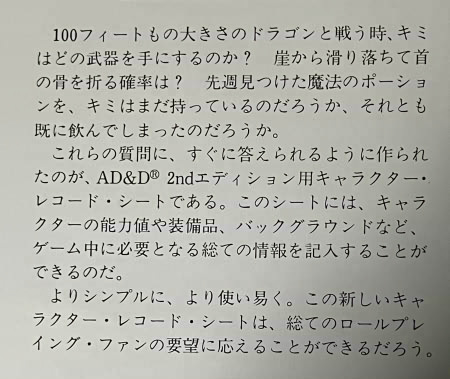 100フィートもの大きさのドラゴンと戦う時、キミ
はどの武器を手にするのか？　崖から滑り落ちて首
の骨を折る確率は？　先週見つけた魔法のポーション
を、キミはまだ持っているのだろうか、それとも
既に飲んでしまったのだろうか。
これらの質問に、すぐに答えられるように作られ
たのが、AD&D® 2ndエディション用キャラクター・
レコード・シートである。このシートには、キャラ
クターの能力値や装備品、バックグラウンドなど、
ゲーム中に必要となる総ての情報を記入することが
できるのだ。
よりシンプルに、より使い易く。この新しいキャ
ラクター・レコード・シートは、総てのロールプレ
イング・ファンの要望に応えることができるだろう。